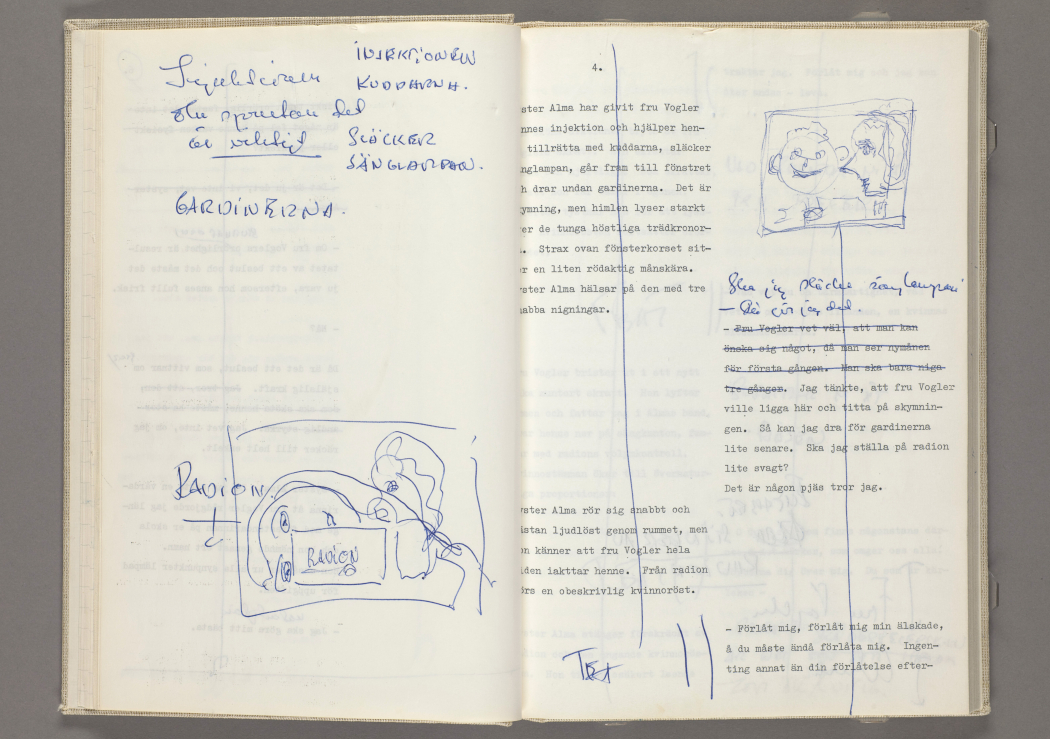 INJEKTIONEN
KUDDARNA.
Injektionen
sprutan det
är viktigt
SLÄCKER
SÄNGLAMPAN.
GARDINERNA.
RADION.
RADION
4.
ster Alma har givit fru Vogler
nnes injektion och hjälper hen-
tillrätta med kuddarna, släcker
nglampan, går fram till fönstret
h drar undan gardinerna. Det är
ymning, men himlen lyser starkt
er de tunga höstliga trädkronor-
. Strax ovan fönsterkorset sit-
r en liten rödaktig månskära.
ster Alma hälsar på den med tre
abba nigningar.
ster Alma rör sig snabbt och
stan ljudlöst genom rummet, men
n känner att fru Vogler hela
iden iakttar henne. Från radion
örs en obeskrivlig kvinnoröst.
Ska jag släcka sänglampan
- Det gör jag det.
- Fru Vogler vet väl, att man kan
önska sig något, då man ser nymånen
för första gången. Man ska bara niga
tre gånger. Jag tänkte, att fru Vogler
ville ligga här och titta på skymnin-
gen. Så kan jag dra för gardinerna
lite senare. Ska jag ställa på radion
lite svagt?
Det är någon pjäs tror jag.
- Förlåt mig, förlåt mig min älskade,
å du måste ändå förlåta mig. Ingen-
ting annat än din förlåtelse efter-